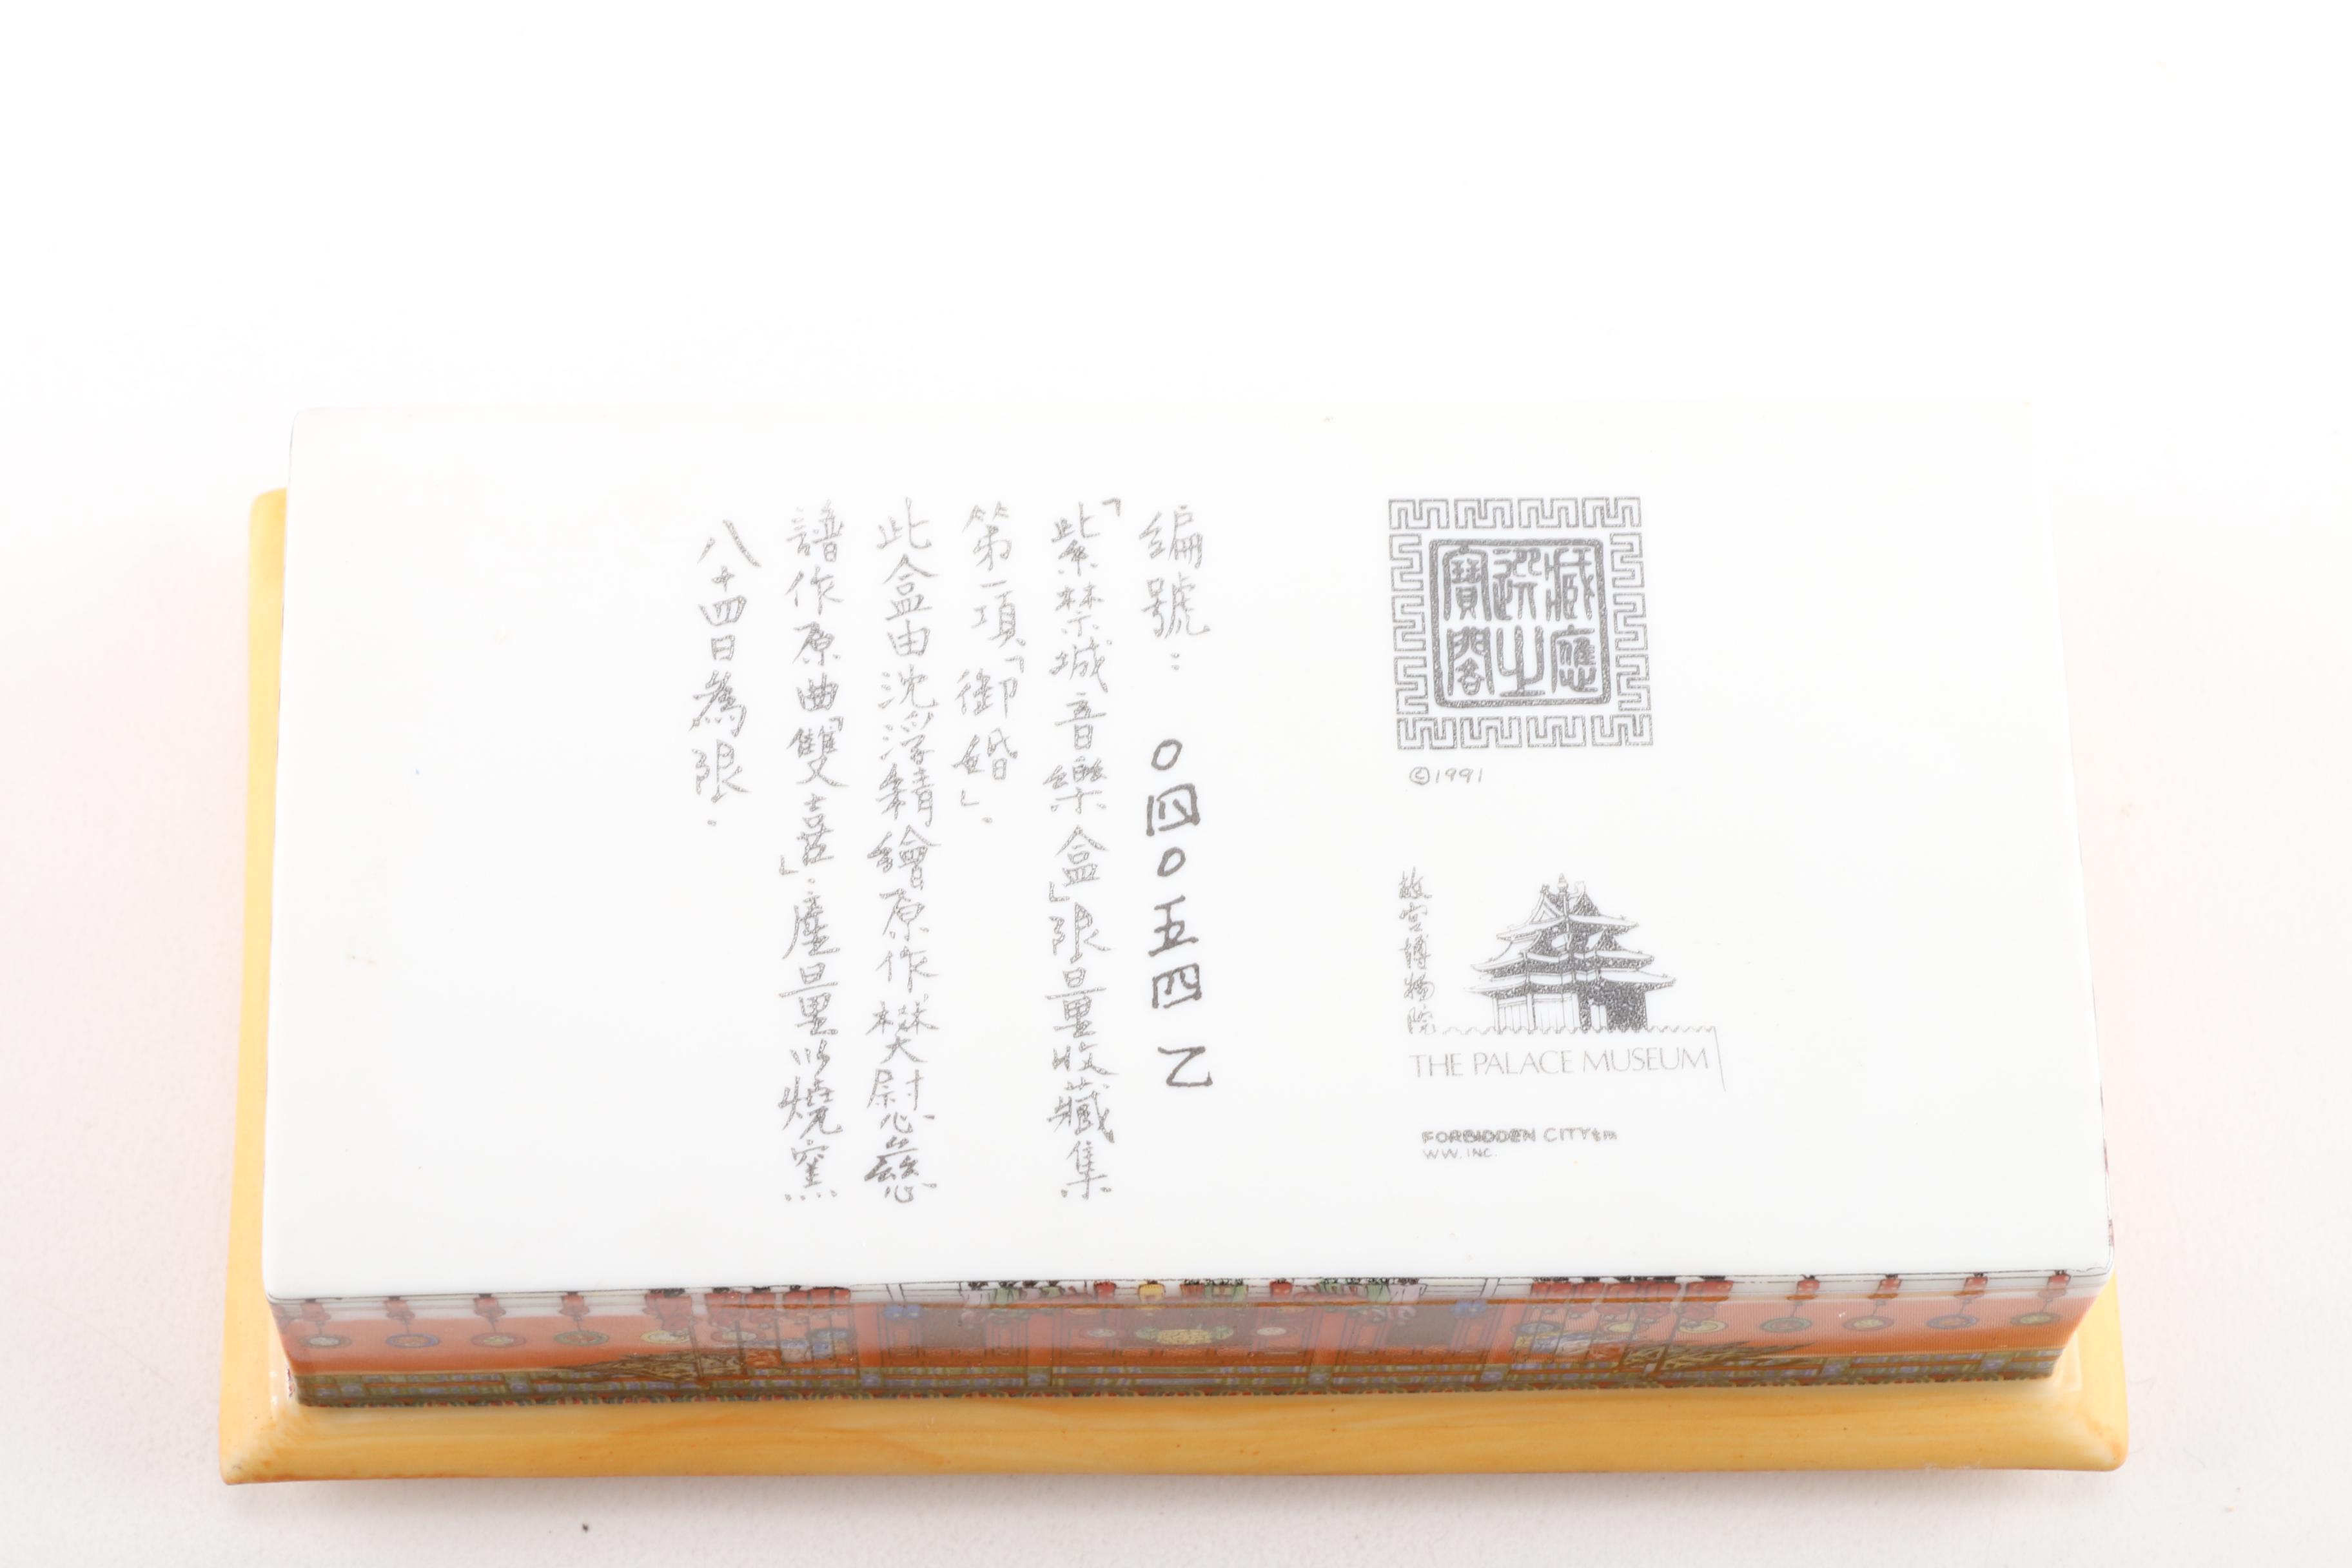 藏應
選之
寶閣
©1991
故宮博物院
THE PALACE MUSEUM
FORBIDDEN CITY tm
WW. INC.
編號：〇四〇五四乙
「紫禁城音樂盒」限量收藏集
第一項「御婚」.
此盒由沈浮精繪原作樊大尉慈
譜作原曲「雙喜」.產量以燒窯
八十四日為限.